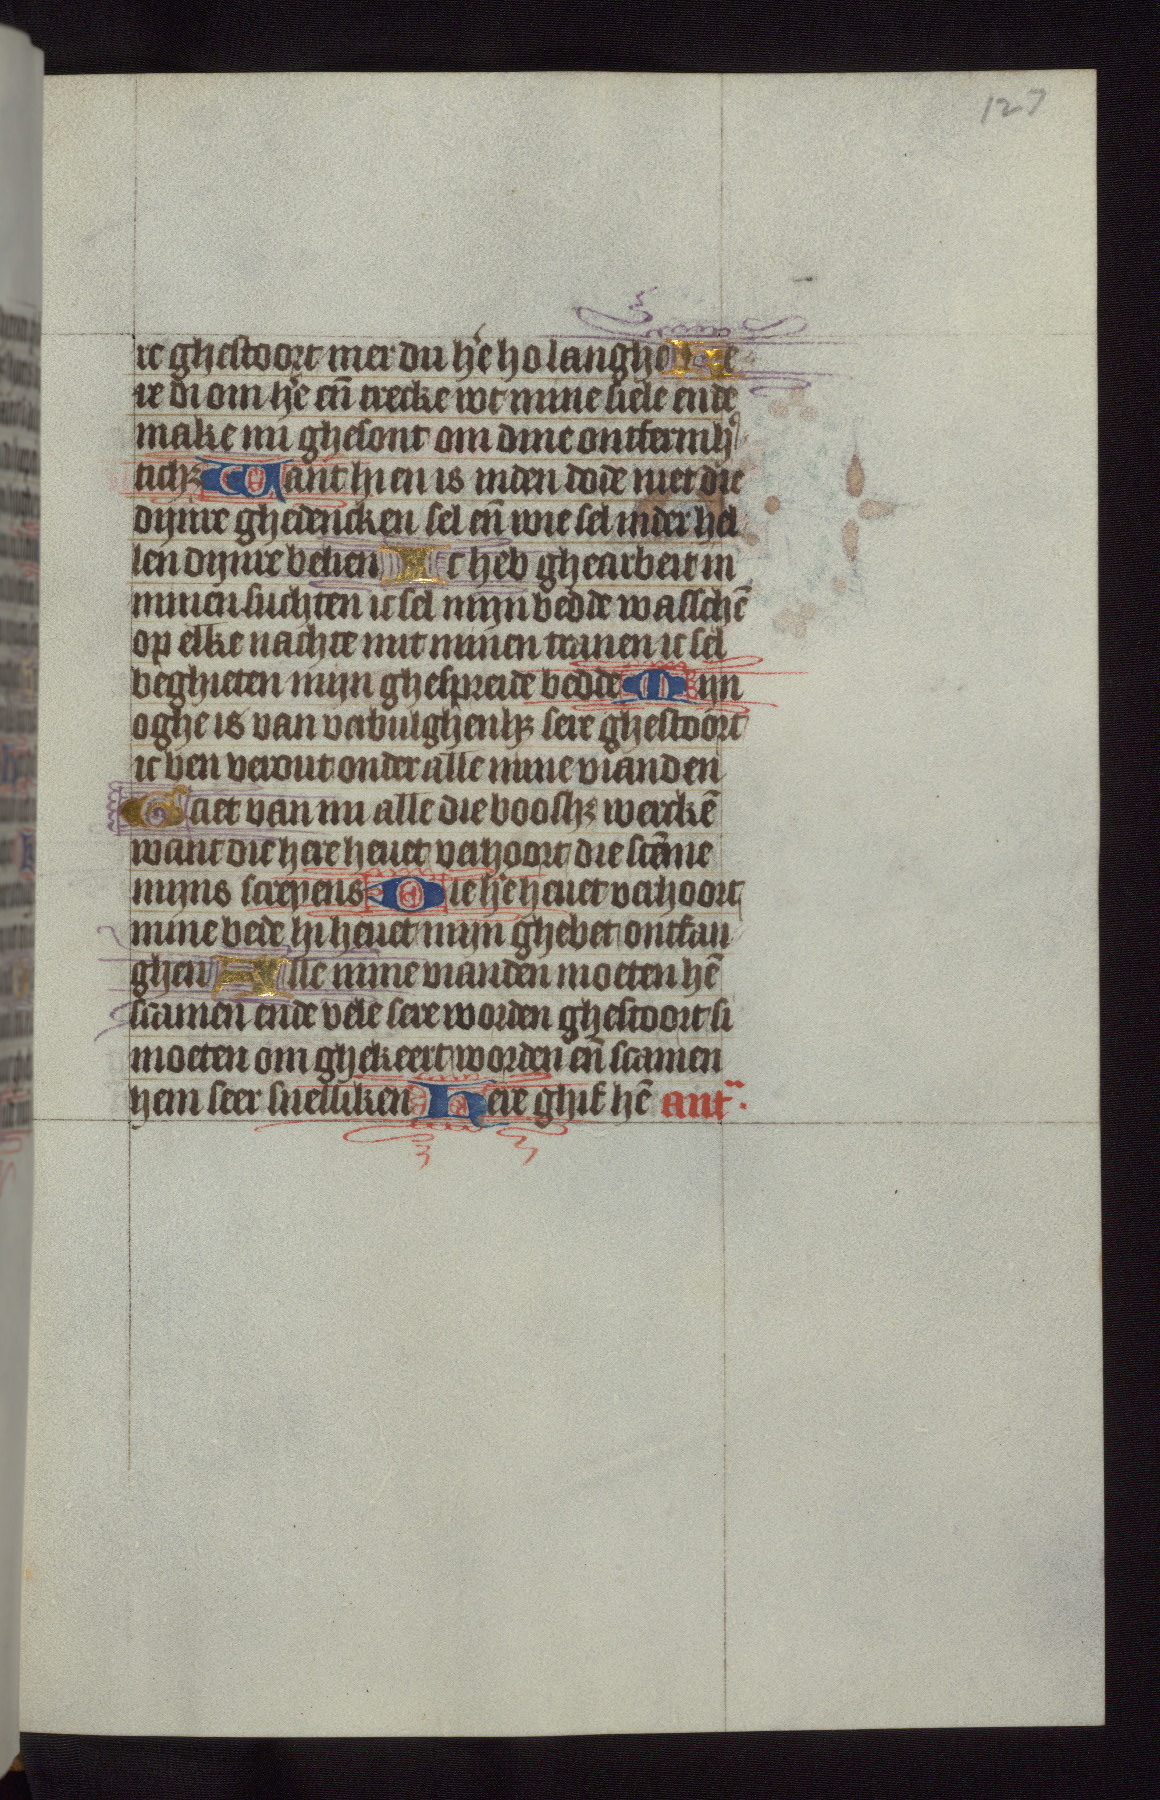 127
re ghestoort mer du hẽ ho langhe Ke
re di om hẽ eñ trecke wt mine siele ende
make mi ghesont om dine ontfermh
ticħꝫ Want hi en is inden dode niet die
dijnre ghedencken sel eñ wie sel inder hel
len dijnre belien Ic heb ghearbeit in
minen suchten ic sel mijn bedde wasschẽ
op elke nachte mit minen tranen ic sel
beghieten mijn ghespreide bedde Mijn
oghe is van verbulghenħꝫ sere ghestoort
ic ben verout onder alle mine vianden
Gaet van mi alle die boosħꝫ werckẽ
want die here heuet verhoort die stẽme
mijns screyens Die hẽ heuet verhoort
mine bede hi heuet mijn ghebet ontfan
ghen Alle mine vianden moeten hẽ
scamen ende vele sere worden ghestoort si
moeten om ghekeert worden eñ scamen
hem seer snelliken Here ghif hẽ ant.